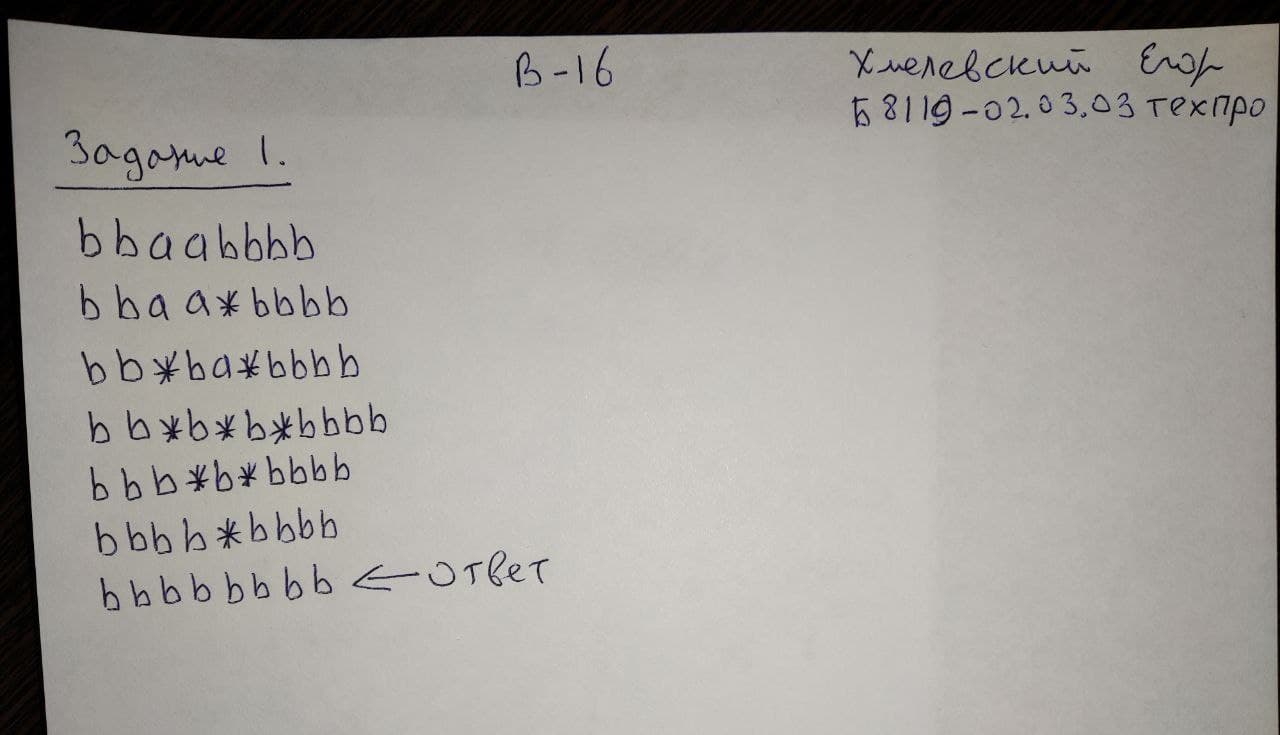 В-16
Хмелевский Егор
Б8119-02.03.03техпро
Задание 1.
bbaabbbb
bbaa*bbbb
bb*ba*bbbb
bb*b*b*bbbb
bbb*b*bbbb
bbbb*bbbb
bbbbbbbb ← ответ